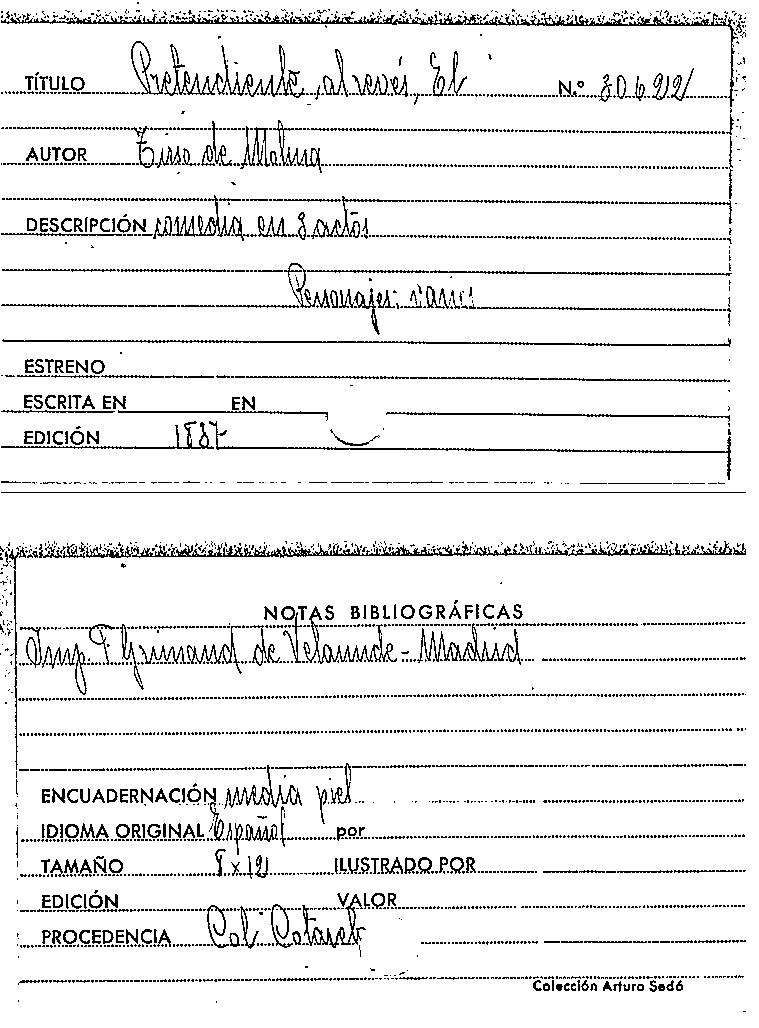 TÍTULO Pretendiente al revés, El N.º 30622
AUTOR Tirso de Molina
DESCRIPCIÓN comedia en 3 actos
Personajes: varios
ESTRENO
ESCRITA EN EN
EDICIÓN 1887
NOTAS BIBLIOGRÁFICAS
Imp. F. Grimaud de Velaunde - Madrid
ENCUADERNACIÓN media piel
IDIOMA ORIGINAL Español por
TAMAÑO 8 x 12 ILUSTRADO POR
EDICIÓN VALOR
PROCEDENCIA Col. Cotarelo
Colección Arturo Sedó